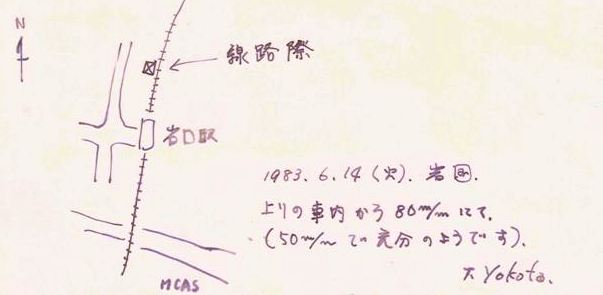 N
線路際
岩国駅
1983.6.14 (火). 岩国.
上りの車内から 80m/m にて.
(50m/m で充分のようです).
T. Yokota.
MCAS